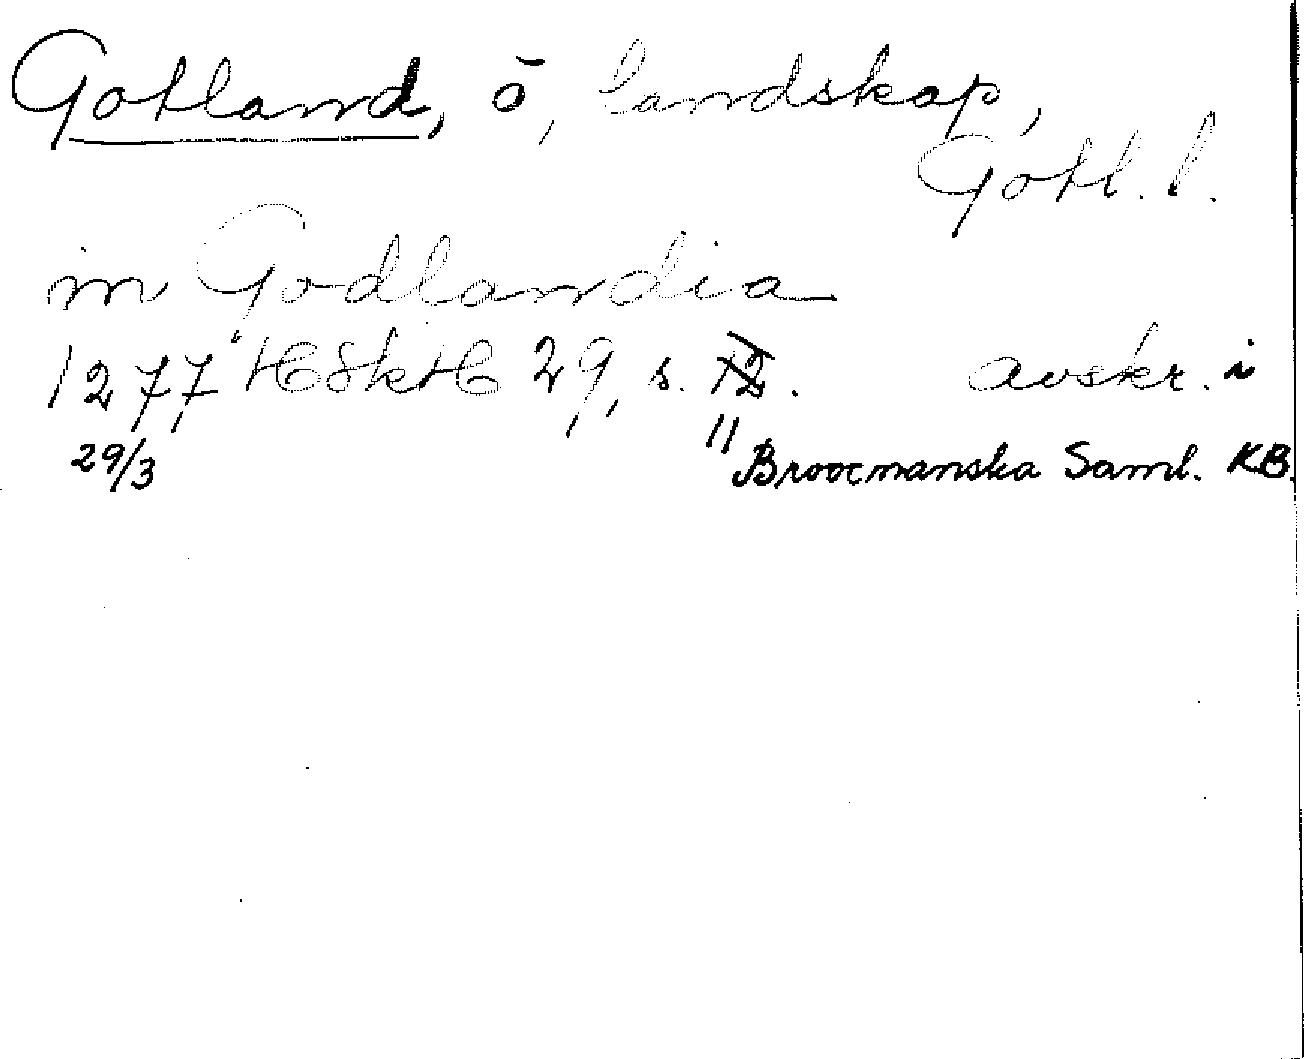 Gotland, ö, landskap,
Gotl. l.
in Godlandia
1277 HSkH 29, s. 12. avskr. i
29/3 11 Broocmanska Saml. KB.